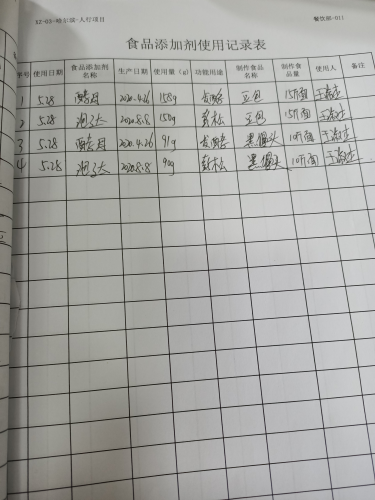 XZ-03-哈尔滨-人行项目 餐饮部-011
食品添加剂使用记录表
序号 使用日期 食品添加剂名称 生产日期 使用量（g） 功能用途 制作食品名称 制作食品量 使用人 备注
1 5.28 酵母 2020.4.26 158g 发酵 豆包 15斤面
2 5.28 泡子大 2020.8.8 150g 膨松 豆包 15斤面
3 5.28 酵母 2020.4.26 91g 发酵 黑馒头 10斤面
4 5.28 泡子大 2020.8.8 90g 膨松 黑馒头 10斤面